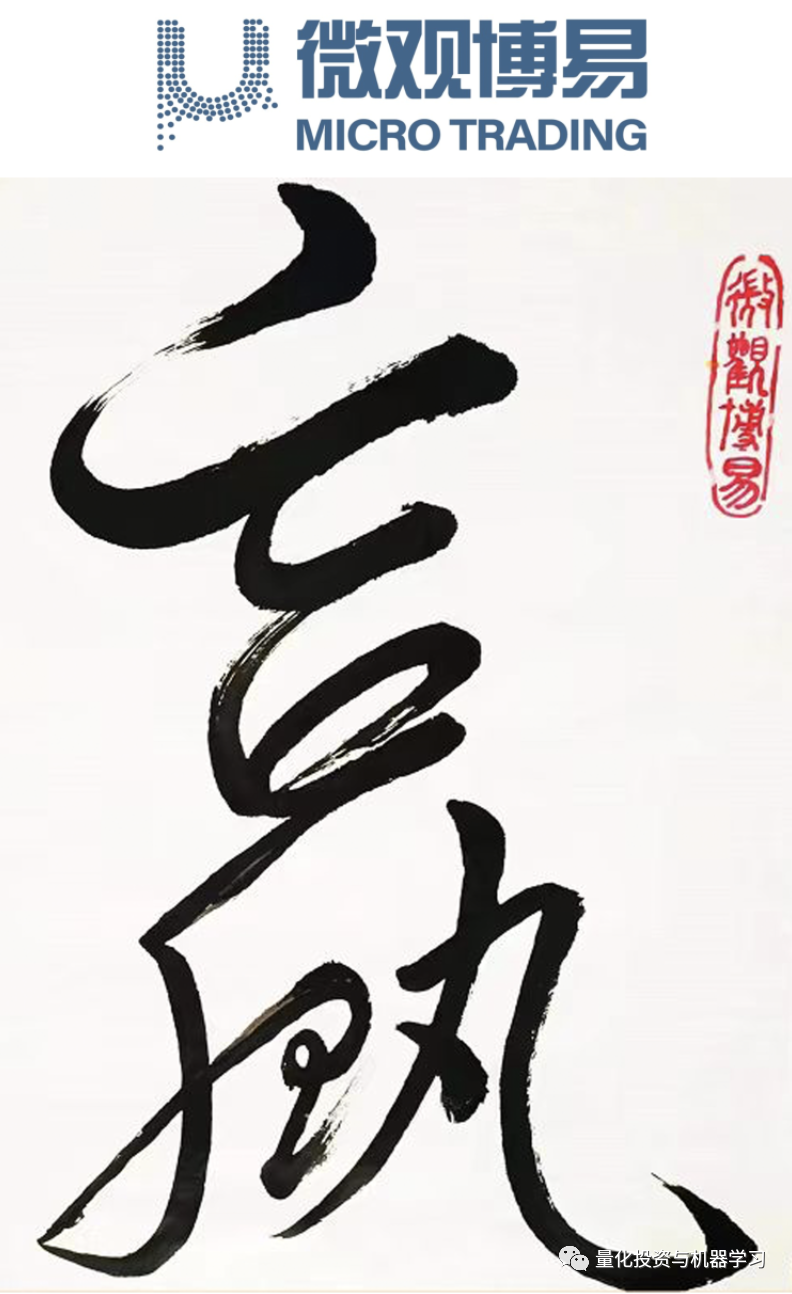 微观博易
MICRO TRADING
赢
微觀博易
量化投资与机器学习